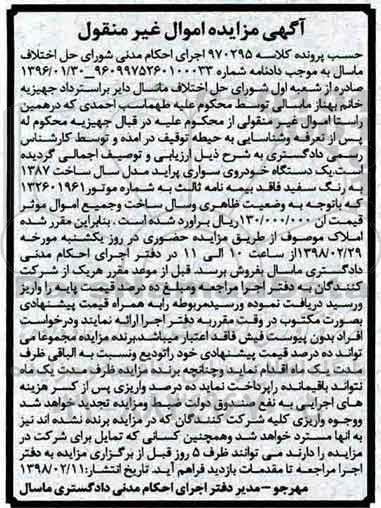 آگهی مزایده اموال غیر منقول
حسب پرونده کلاسه ۹۷۰۲۹۵ اجرای احکام مدنی شورای حل اختلاف
ماسال به موجب دادنامه شماره ۹۶۰۹۹۷۵۲۶۰۱۰۰۰۳۳_۱۳۹۶/۰۱/۳۰
صادره از شعبه اول شورای حل اختلاف ماسال دایر براسترداد جهیزیه
خانم بهناز ماسالی توسط محکوم علیه طهماسب احمدی که درهمین
راستا اموال غیر منقولی از محکوم علیه در قبال جهیزیه محکوم له
پس از تعرفه وشناسایی به حیطه توقیف در امده و توسط کارشناس
رسمی دادگستری به شرح ذیل ارزیابی و توصیف اجمالی گردیده
است.یک دستگاه خودروی سواری پراید مدل سال ساخت ۱۳۸۷
به رنگ سفید فاقد بیمه نامه ثالث به شماره موتور۱۳۲۶۰۱۹۶۱
که باتوجه به وضعیت ظاهری وسال ساخت وجمیع اموال موثر
قیمت ان ۱۳۰/۰۰۰/۰۰۰ریال براورد شده است . بنابراین مقرر شده
املاک موصوف از طریق مزایده حضوری در روز یکشنبه مورخه
۱۳۹۸/۰۲/۲۹از ساعت ۱۰ الی ۱۱ در دفتر اجرای احکام مدنی
دادگستری ماسال بفروش برسد. قبل از موعد مقرر هریک از شرکت
کنندگان به دفتر اجرا مراجعه ومبلغ ده درصد قیمت پایه را واریز
ورسید دریافت نموده ورسیدمربوطه رابه همراه قیمت پیشنهادی
بصورت مکتوب در وقت مقرربه دفتر اجرا ارائه نمایند ودرخواست
افراد بدون پیوست فیش فاقد اعتبار میباشد.برنده مزایده مجموعا می
تواند ده درصد قیمت پیشنهادی خود راتودیع ونسبت به الباقی ظرف
مدت یک ماه اقدام نماید وچنانچه برنده مزایده ظرف مدت یک ماه
نتواند باقیمانده راپرداخت نماید ده درصد واریزی پس از کسر هزینه
های اجرایی به نفع صندوق دولت ضبط ومزایده تجدید خواهد شد
ووجوه واریزی کلیه شرکت کنندگان که در مزایده برنده نشده اند نیز
به انها مسترد خواهد شد وهمچنین کسانی که تمایل برای شرکت در
مزایده را دارند می توانند ظرف ۵ روز قبل از برگزاری مزایده به دفتر
اجرا مراجعه تا مقدمات بازدید فراهم آید. تاریخ انتشار:۱۳۹۸/۰۲/۱۱
مهرجو – مدیر دفتر اجرای احکام مدنی دادگستری ماسال